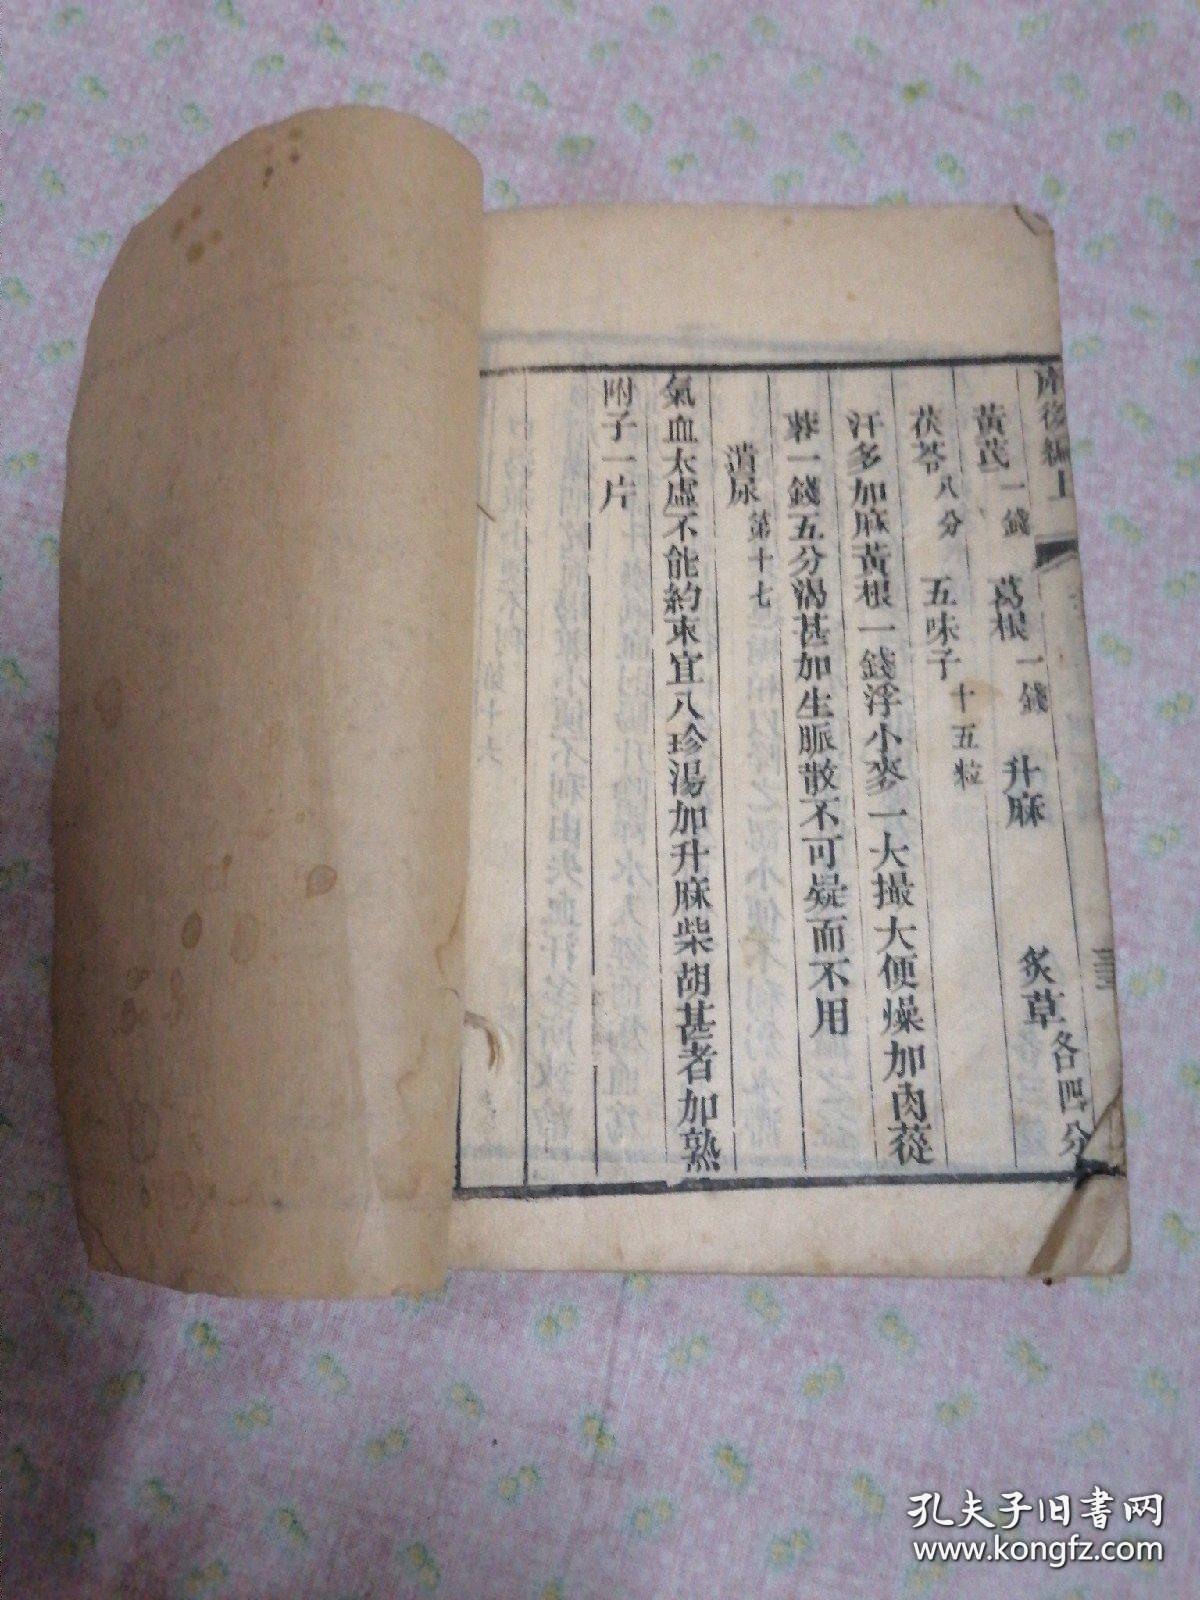 產後編上
黃芪一錢 葛根一錢 升麻 炙草各四分
茯苓八分 五味子十五粒
汗多加麻黃根一錢浮小麥一大撮大便燥加肉蓯
蓉一錢五分渴甚加生脈散不可疑而不用
遺尿第十七
氣血太虛不能約束宜八珍湯加升麻柴胡甚者加熟
附子一片
孔夫子旧书网
www.kongfz.com